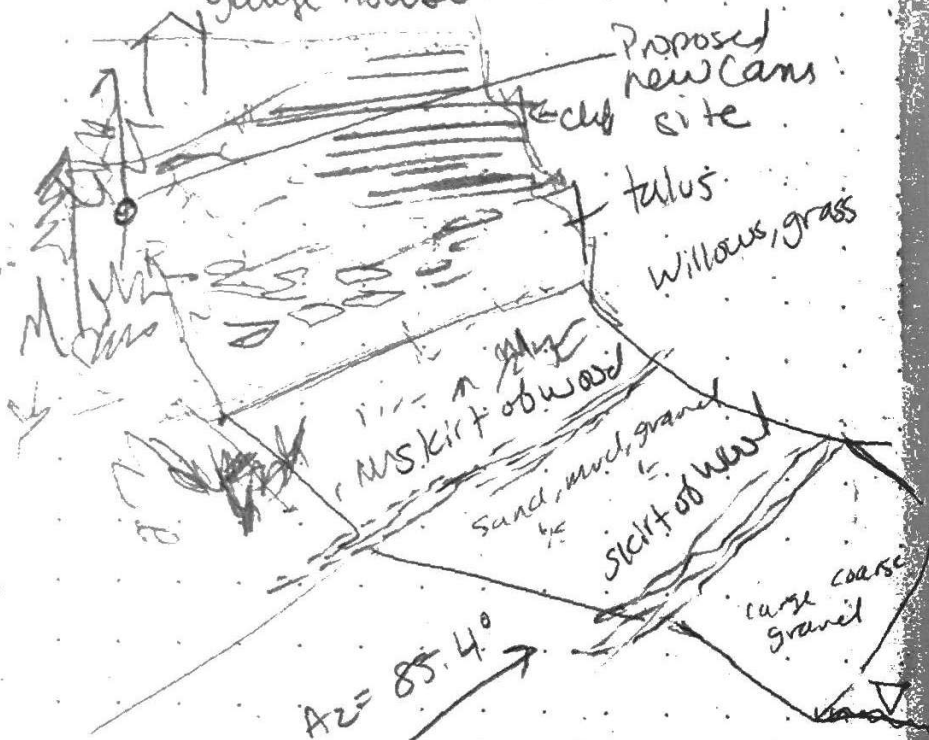 gauge house
Proposed
new Cams
site
talus
Willows, grass
skirt of wood
sand, mud, gravel
skirt of wood
large coarse
gravel
Az= 85.4°